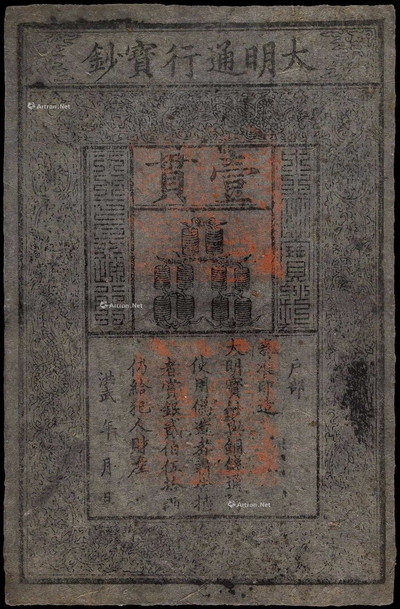 大明通行寶鈔
壹貫
户部
奏准印造
大明寶鈔與銅錢通
使用偽造者斬告捕
者賞銀貳伯伍拾兩
仍給犯人財產
洪武 年 月 日
Artron.Net
Artron.Net
Artron.Net